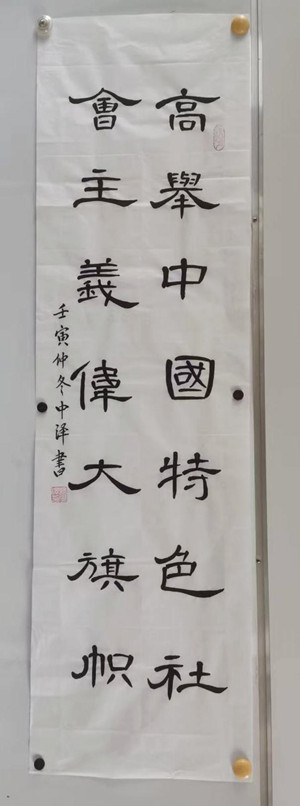 高舉中國特色社
會主義偉大旗幟
壬寅仲冬中泽書